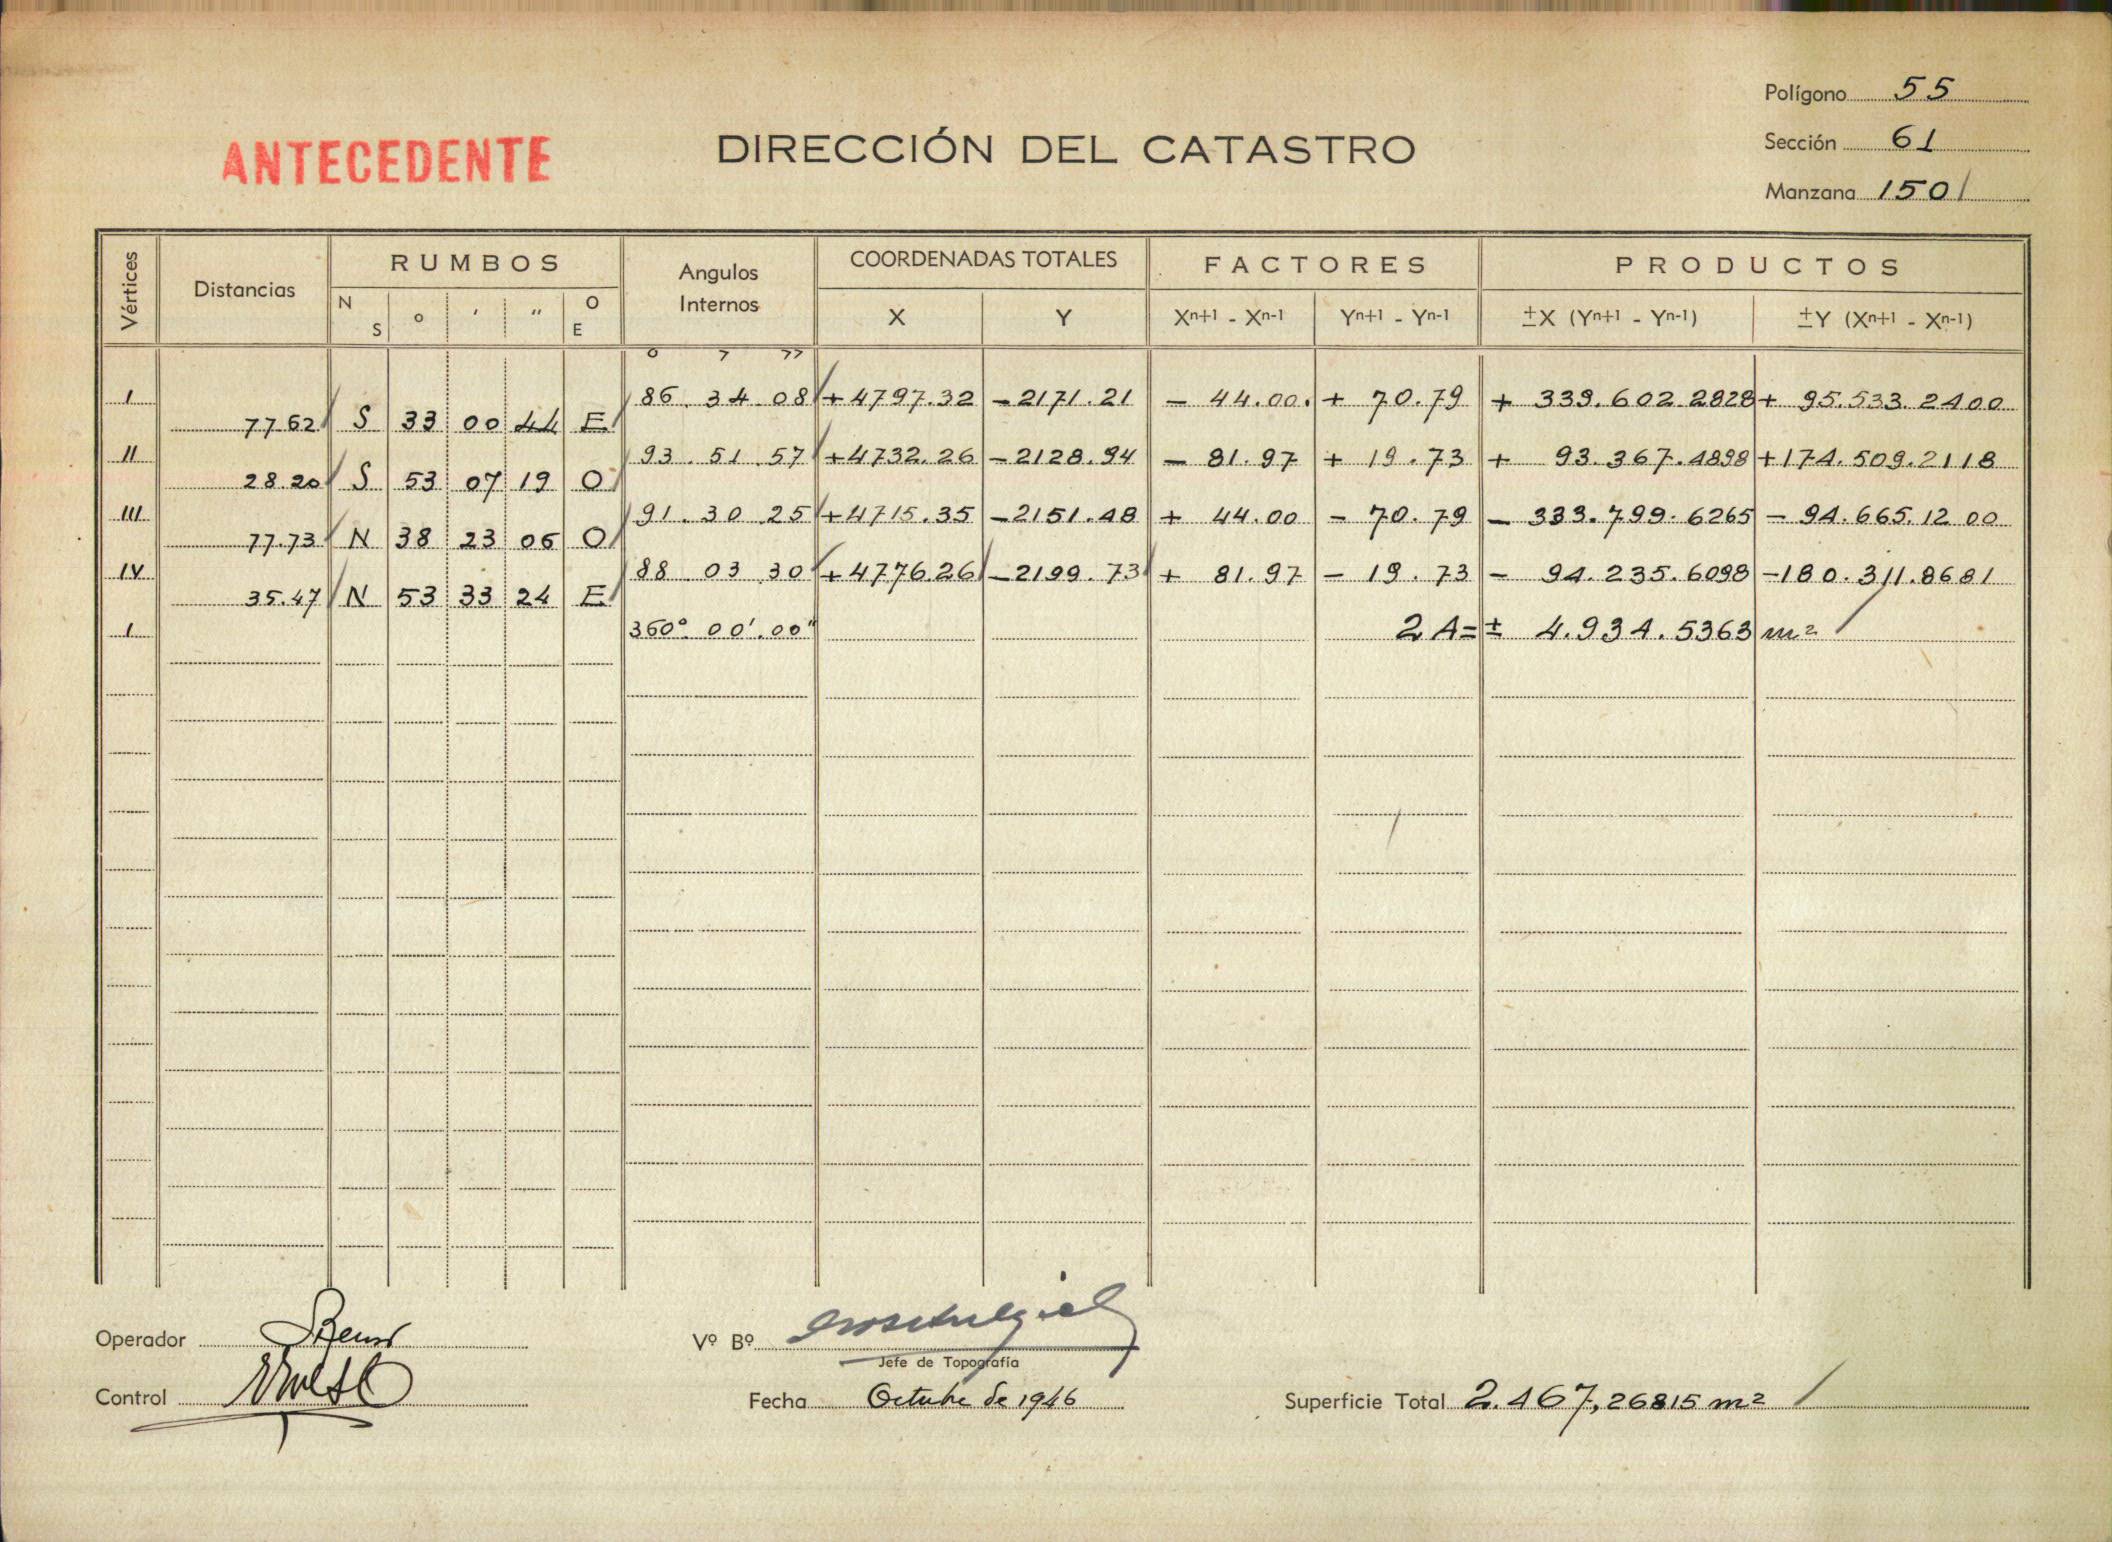 Polígono 55
ANTECEDENTE
DIRECCIÓN DEL CATASTRO
Sección 61
Manzana 1501
Vértices Distancias RUMBOS Angulos Internos COORDENADAS TOTALES FACTORES PRODUCTOS
N S ° ' " O E X Y Xn+1 - Xn-1 Yn+1 - Yn-1 ±X (Yn+1 - Yn-1) ±Y (Xn+1 - Xn-1)
° ' "
I 86 34 08 +4797.32 -2171.21 - 44.00 + 70.79 + 339.602.2828 + 95.533.2400
77.62 S 33 00 44 E
II 93 51 57 +4732.26 -2128.94 - 81.97 + 19.73 + 93.367.4898 +174.509.2118
28.20 S 53 07 19 O
III 91 30 25 +4715.35 -2151.48 + 44.00 - 70.79 - 333.799.6265 - 94.665.12 00
77.73 N 38 23 06 O
IV 88 03 30 +4776.26 -2199.73 + 81.97 - 19.73 - 94.235.6098 -180.311.8681
35.47 N 53 33 24 E
I 360° 00' 00" 2A=± 4.934.5363 m²
Operador
Vº Bº
Jefe de Topografía
Control
Fecha Octubre de 1946
Superficie Total 2.467,26815 m²